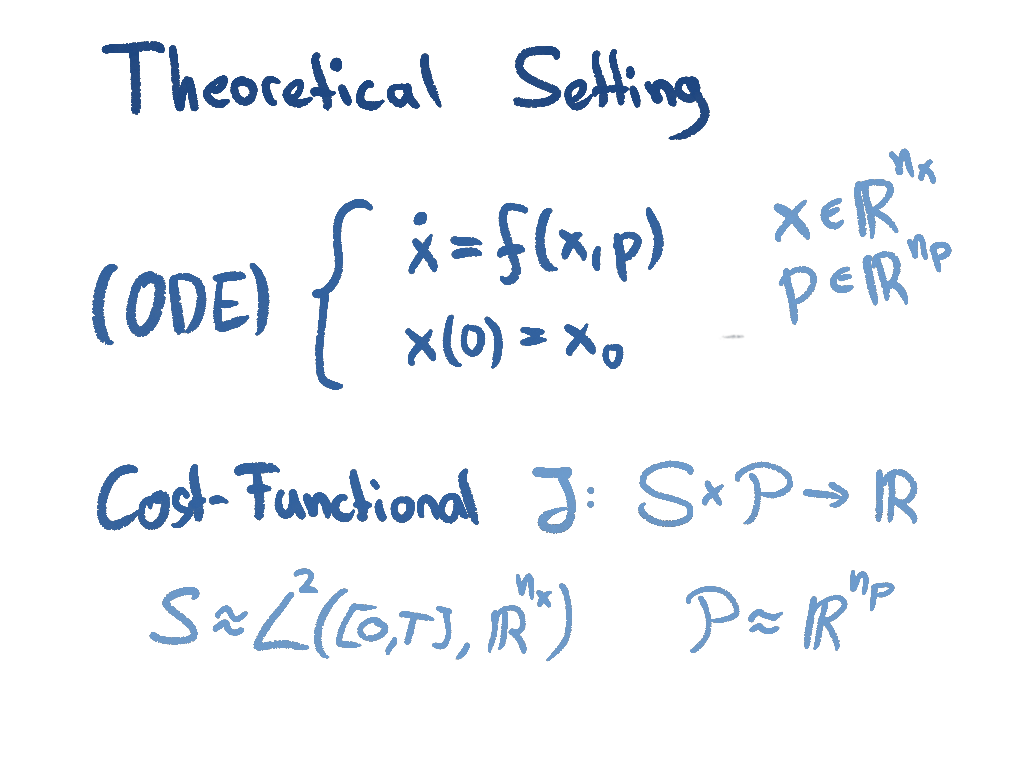 Theoretical Setting
(ODE) { ẋ = f(x, p)
x(0) = x₀
x ∈ ℝ^{n_x}
p ∈ ℝ^{n_p}
Cost-Functional J: S × P → ℝ
S ≈ L²([0,T], ℝ^{n_x}) P ≈ ℝ^{n_p}